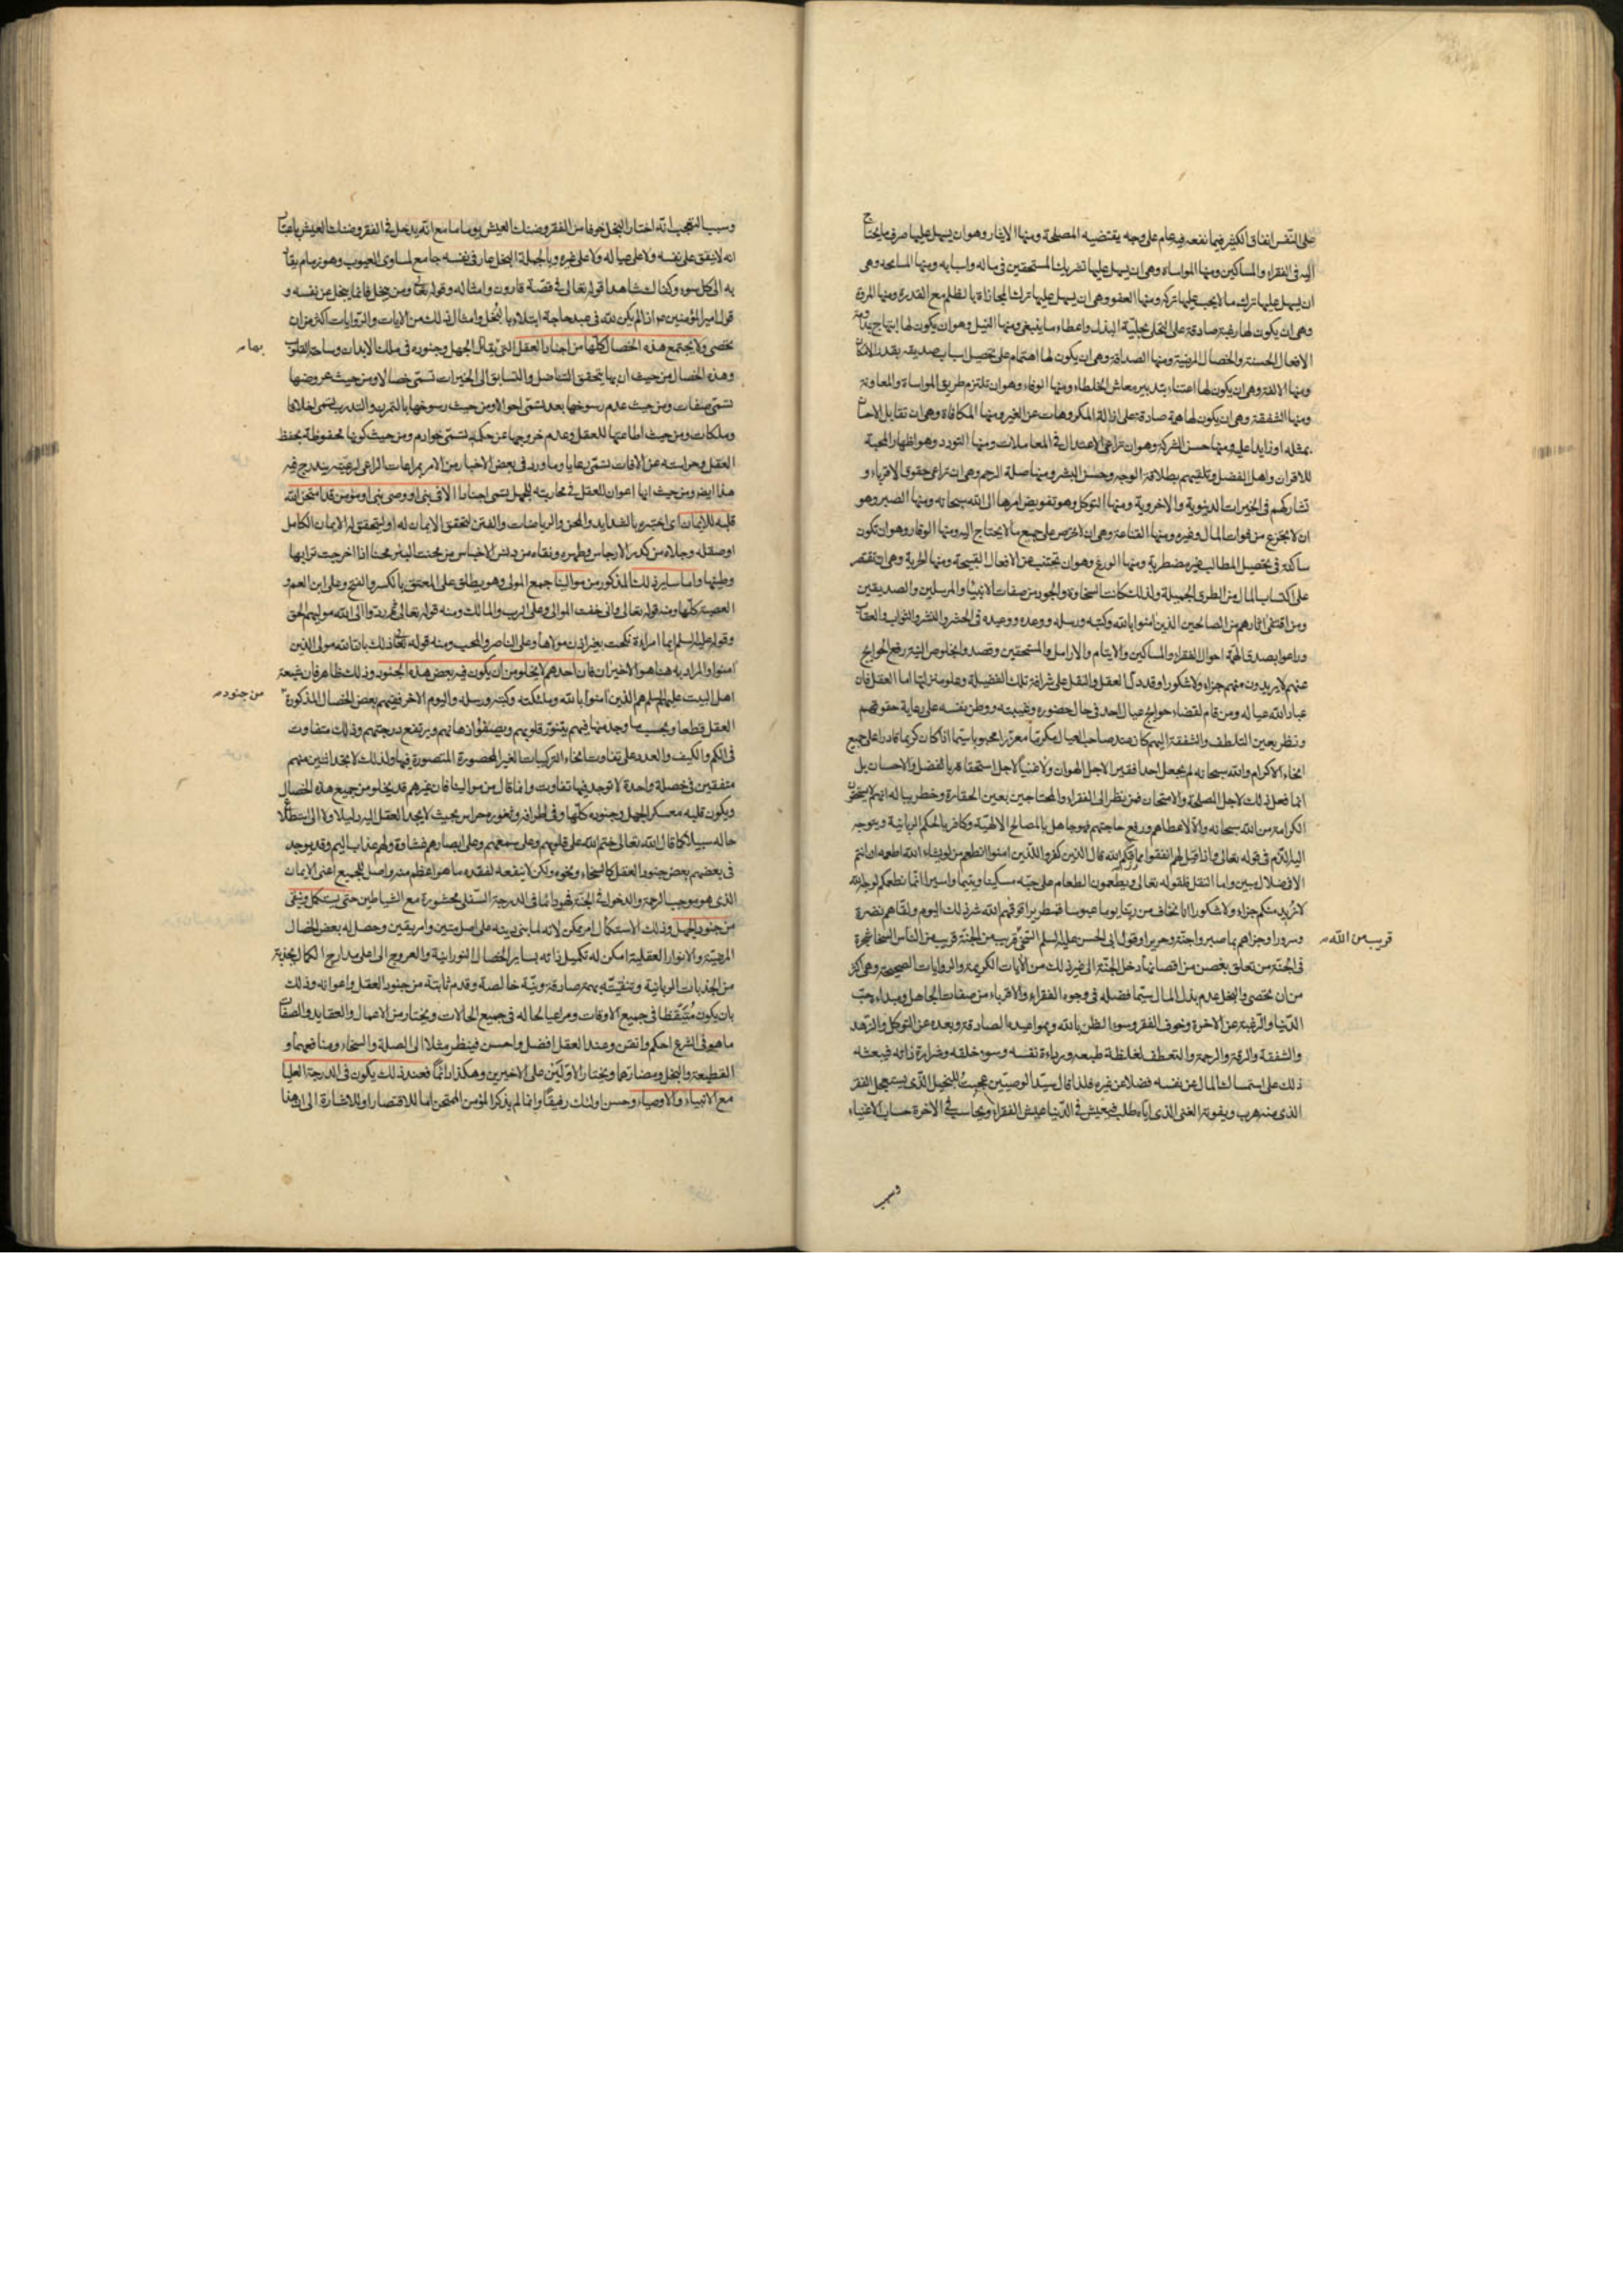 على النفس انفاق الكثير فيما نفعه فيه عام على وجه يقتضيه المصلحة ومنها الايثار وهو ان يسهل عليها صرف ما يحتاج
اليه فى الفقراء والمساكين ومنها المواساة وهى ان يسهل عليها تشريك المستحقين فى ماله واسبابه ومنها المسامحة وهى
ان يسهل عليها ترك ما لا يجب عليها تركه ومنها العفو وهى ان يسهل عليها ترك المجازاة بالظلم مع القدرة ومنها المروة
وهى ان يكون لها رغبة صادقة على التحلى بحلية البذل واعطاء ما ينبغى ومنها النيل وهو ان يكون لها ابتهاج بمداومة
الافعال الحسنة والخصال المرضية ومنها الصداقة وهى ان يكون لها اهتمام على تحصيل اسباب صديقه بقدر الامكان
ومنها الالفة وهى ان يكون لها اعتناء بتدبير معاش الخلطاء ومنها الوفاء وهو ان تلتزم طريق المواساة والمعاونة
ومنها الشفقة وهى ان يكون لها همة صادقة على ازالة المكروهات عن الغير ومنها المكافاة وهى ان تقابل الاحسان
بمثله او زايد عليه ومنها حسن الشركة وهو ان تراعى الاعتدال فى المعاملات ومنها التودد وهو اظهار المحبة
للاقران واهل الفضل وتلقيهم بطلاقة الوجه وحسن البشر ومنها صلة الرحم وهى ان تراعى حقوق الاقرباء و
تشاركهم فى الخيرات الدنيوية والاخروية ومنها التوكل وهو تفويض امرها الى الله سبحانه ومنها الصبر وهو
ان لا يجزع من فوات المال وغيره ومنها القناعة وهى ان لا تحرص على جميع ما لا يحتاج اليه ومنها الوقار وهو ان تكون
ساكنة فى تحصيل المطالب غير مضطربة ومنها الورع وهو ان تجتنب عن الافعال القبيحة ومنها الحرية وهى ان تقتصر
على اكتساب المال من الطرق الجميلة ولذلك كانت السخاوة والجود من صفات الانبياء والمرسلين والصديقين
ومن اقتفى اثارهم من الصالحين الذين امنوا بالله وكتبه ورسله ووعده ووعيده فى الحشر والنشر والثواب والعقاب
وراعوا بصدق الهمة احوال الفقراء والمساكين والايتام والارامل والمستحقين وقصدوا بخلوص النية رفع الحوايج
عنهم لا يريدون منهم جزاء ولا شكورا وقد دل العقل والنقل على شرافة تلك الفضيلة وعلو منزلتها اما العقل فان
عباد الله عياله ومن قام لقضاء حوايج عيال احد فى حال حضوره وغيبته ووطن نفسه على رعاية حقوقهم
ونظر بعين التلطف والشفقة اليهم كان عند صاحب العيال مكرما معززا محبوبا سيما اذا كان كريما قادرا على جميع
انحاء الاكرام والله سبحانه لم يجعل احدا فقيرا لاجل الهوان ولا غنيا لاجل استحقاقه بالفضل والاحسان بل
انما فعل ذلك لاجل المصلحة والامتحان فمن نظر الى الفقراء والمحتاجين بعين الحقارة وخطر بباله انهم لا يستحقون
الكرامة من الله سبحانه والا لاعطاهم ورفع حاجتهم فهو جاهل بالمصالح الالهية وكافر بالحكم الربانية ويتوجه
اليه الذم فى قوله تعالى واذا قيل لهم انفقوا مما رزقكم الله قال الذين كفروا للذين امنوا انطعم من لو يشاء الله اطعمه ان انتم
الا فى ضلال مبين واما النقل فلقوله تعالى ويطعمون الطعام على حبه مسكينا ويتيما واسيرا انما نطعمكم لوجه الله
لا نريد منكم جزاء ولا شكورا انا نخاف من ربنا يوما عبوسا قمطريرا فوقهم الله شر ذلك اليوم ولقاهم نضرة
وسرورا وجزاهم بما صبروا جنة وحريرا وقول ابى الحسن عليه السلم السخى قريب من الجنة قريب من الناس السخا شجرة
قريب من الله
فى الجنة من تعلق بغصن من اغصانها دخل الجنة الى غير ذلك من الايات الكريمة والروايات الصحيحة وهى اكثر
من ان تحصى والبخل عدم بذل المال سيما فضله فى وجوه الفقراء والاقرباء من صفات الجاهل ومبداءه حب
الدنيا والرغبة عن الاخرة وخوف الفقر وسوء الظن بالله وبمواعيده الصادقة وبعده عن التوكل والزهد
والشفقة والرقة والرحمة والتعطف لغلظة طبعه ورداءة نفسه وسوء خلقه وضرارة ذاته فيبعثه
ذلك على امساك المال عن نفسه فضلا عن غيره فلذا قال سيد الوصيين عجبت للبخيل الذى يستعجل الفقر
الذى منه هرب ويفوته الغنى الذى اياه طلب فيعيش فى الدنيا عيش الفقراء ويحاسب فى الاخرة حساب الاغنياء
وسبب
وسبب التعجب انه اختار البخل خوفا من الفقر وضنك العيش يوما ما مع انه يدخل فى الفقر وضنك العيش باعتبار
انه لا ينفق على نفسه ولا على عياله ولا على غيره وبالجملة البخل عار فى نفسه جامع لمساوى العيوب وهو زمام يقاد
به الى كل سوء وكفاك شاهدا قوله تعالى فى قصة قارون وامثاله وقوله تعالى ومن يبخل فانما يبخل عن نفسه و
قول امير المؤمنين ع اذا لم يكن لله فى عبد حاجة ابتلاه بالبخل وامثال ذلك من الايات والروايات اكثر من ان
تحصى ولا يجتمع هذه الخصال كلها من اجناد العقل التى يقاتل الجهل وجنوده فى ملك الابدان وساحة القلوب
بها
وهذه الخصال من حيث ان بها يتحقق التناضل والتسابق الى الخيرات تسمى خصالا ومن حيث عروضها
تسمى صفات ومن حيث عدم رسوخها بعد تسمى احوالا ومن حيث رسوخها بالتمرن والتدرب تسمى اخلاقا
وملكات ومن حيث اطاعتها للعقل وعدم خروجها عن حكمه تسمى خوادم ومن حيث كونها محفوظة بحفظ
العقل وحراسته عن الافات تسمى رعايا وما ورد فى بعض الاخبار من الامر بمراعات الراعى لرعيته يندرج فيه
هذا ايضا ومن حيث انها اعوان للعقل فى محاربته للجهل تسمى اجنادا الا فى نبى او وصى نبى او مؤمن قد امتحن الله
قلبه للايمان اى اختبره بالشدايد والمحن والرياضات والفتن لتحقق الايمان له او ليتحقق له الايمان الكامل
او صقله وجلاه من كدر الارجاس وطهره ونقاه من دنس الاخباس من محنت البئر محنا اذا اخرجت ترابها
وطينها واما ساير ذلك المذكور من موالينا جمع المولى وهو يطلق على المعتق بالكسر والفتح وعلى ابن العم و
العصبة كلها ومنه قوله تعالى وانى خفت الموالى وعلى الرب والمالك ومنه قوله تعالى ثم ردوا الى الله موليهم الحق
وقوله عليه السلم ايما امراءة نكحت بغير اذن مولاها وعلى الناصر والمحب ومنه قوله تعالى ذلك بان الله مولى الذين
امنوا والمراد به هنا هو الاخيران فان احدهم لا يخلو من ان يكون فيه بعض هذه الجنود وذلك ظاهر فان شيعة
اهل البيت عليهم السلم هم الذين امنوا بالله وملئكته وكتبه ورسله واليوم الاخر ففيهم بعض الخصال المذكورة
من جنود
العقل قطعا وبحسب ما وجد منها فيهم يتنور قلوبهم ويصفو اذهانهم ويرتفع درجتهم وذلك متفاوت
فى الكم والكيف والعدد على تفاوت انحاء التركيبات الغير المحصورة المتصورة فيها ولذلك لا تجد اثنين منهم
متفقين فى خصلة واحدة لا توجد فيها تفاوت وانما قال من موالينا فان غيرهم قد يخلو من جميع هذه الخصال
ويكون قلبه معسكر الجهل وجنوده كلها وفى اطرافه وثغوره حراس بحيث لا يجد العقل اليه دليلا ولا الى استطلاع
حاله سبيلا كما قال الله تعالى ختم الله على قلوبهم وعلى سمعهم وعلى ابصارهم غشاوة ولهم عذاب اليم وقد يوجد
فى بعضهم بعض جنود العقل كالسخاء ونحوه ولكن لا ينفعه لفقده ما هو اعظم منه واصل للجميع اعنى الايمان
الذى هو موجب الرحمة والدخول فى الجنة فهو دائما فى الدرجة السفلى محشورة مع الشياطين حتى يستكمل وينقى
من جنود الجهل وذلك الاستكمال امر ممكن لانه لما بنى دينه على اصل متين وامر يقين وحصل له بعض الخصال
المرضية والانوار العقلية امكن له تكميل ذاته بساير الخصال النورانية والعروج الى اعلى مدارج الكمال بجذبة
من الجذبات الربانية وتنقيته بهمة صادقة ونية خالصة وقدم ثابتة من جنود العقل واعوانه وذلك
بان يكون متيقظا فى جميع الاوقات ومراعيا لحاله فى جميع الحالات ويختار من الاعمال والعقايد والصفات
ما هو فى الشرع احكم واتقن وعند العقل افضل واحسن فينظر مثلا الى الصلة والسخاء ومنافعهما و
القطيعة والبخل ومضارهما ويختار الاولين على الاخيرين وهكذا دائما فعند ذلك يكون فى الدرجة العليا
مع الانبياء والاوصياء وحسن اولئك رفيقا وانما لم يذكر المؤمن الممتحن اما للاقتصار او للاشارة الى ان هذا